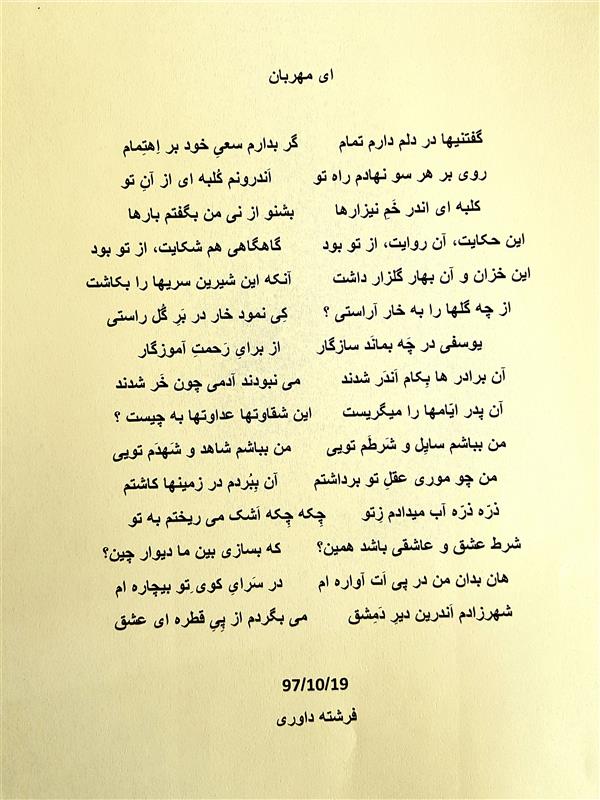 ای مهربان
گفتنیها در دلم دارم تمام گر بدارم سعیِ خود بر اِهتِمام
روی بر هر سو نهادم راه تو اَندرونم کُلبه ای از آنِ تو
کلبه ای اندر خَمِ نیزارها بشنو از نی من بگفتم بارها
این حکایت، آن روایت، از تو بود گاهگاهی هم شکایت، از تو بود
این خزان و آن بهار گلزار داشت آنکه این شیرین سریها را بکاشت
از چه گلها را به خار آراستی ؟ کِی نمود خار در بَرِ گُل راستی
یوسفی در چَه بمانَد سازگار از برایِ رَحمتِ آموزگار
آن برادر ها بِکام اَندَر شدند می نبودند آدمی چون خَر شدند
آن پدر ایّامها را میگریست این شقاوتها عداوتها به چیست ؟
من بباشم سایِل و شَرطَم تویی من بباشم شاهد و شَهدَم تویی
من چو موری عقلِ تو برداشتم آن بِبُردم در زمینها کاشتم
ذرّه ذرّه آب میدادم زِتو چِکه چِکه اَشک می ریختم به تو
شرط عشق و عاشقی باشد همین؟ که بسازی بین ما دیوار چین؟
هان بدان من در پی اَت آواره ام در سَرایِ کوی ِتو بیچاره ام
شهرزادم اَندرین دیرِ دَمِشق می بگردم از پِیِ قطره ای عشق
97/10/19
فرشته داوری